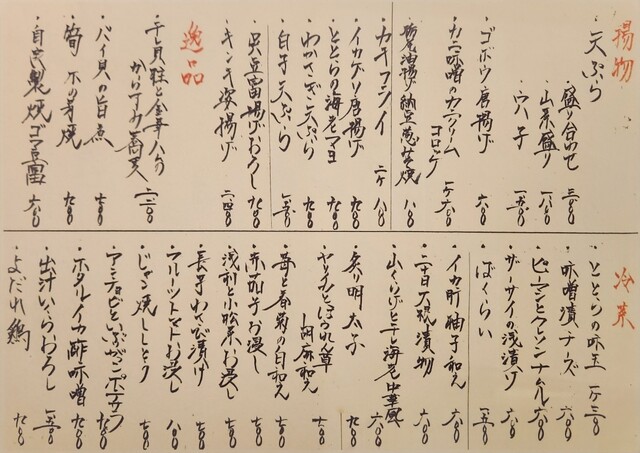 揚物
天ぷら
・盛り合わせ 二三〇〇
・山菜盛り 一八〇〇
・穴子 一五〇〇
・ゴボウ唐揚げ 六〇〇
・カニ味噌のカニクリームコロッケ 一ケ 六〇〇
・栃尾油揚げ納豆葱芝焼 八〇〇
・カキフライ 二ケ 八〇〇
・イカゲソ唐揚げ 九〇〇
・ととらの海老マヨ 九〇〇
・わかさぎ天ぷら 九〇〇
・白子天ぷら 一五〇〇
・呉豆腐揚げおろし 九〇〇
・キンキ姿揚げ 二四〇〇
逸品
・干貝柱と金華ハムの
からすみ蕎麦 二二〇〇
・バイ貝の旨煮 七〇〇
・筍 木の芽焼 九〇〇
・自家製焼ゴマ豆腐 六〇〇
冷菜
・ととらの味玉 一ケ 三〇〇
・味噌漬チーズ 六〇〇
・ピーマンとクラゲンナムル 六〇〇
・ザーサイの浅漬け 六〇〇
・ばくらい 一五〇〇
・イカ肝柚子和え 六〇〇
・二十日大根漬物 六〇〇
・山くらげと干し海老中華風 六〇〇
・炙り明太子 九〇〇
・ヤリイカとほうれん草
胡麻和え 七〇〇
・苺と春菊の白和え 七〇〇
・赤茄子お浸し 七〇〇
・浅利と小松菜お浸し 七〇〇
・長芋わさび漬け 七〇〇
・フルーツトマトお浸し 八〇〇
・じゃん焼ししとう 七〇〇
・アンチョビといぶりがっこポテサラ 七〇〇
・ホタルイカ酢味噌 九〇〇
・出汁いくらおろし 一五〇〇
・よだれ鶏 九〇〇